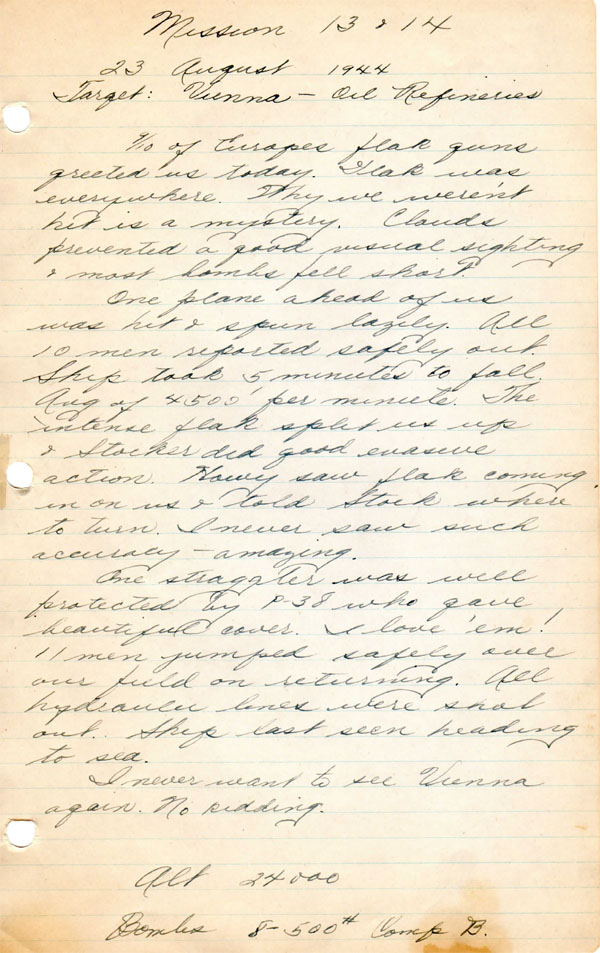 Mission 13 & 14
23 August 1944
Target: Vienna - Oil Refineries
9/10 of Europes flak guns
greeted us today. Flak was
everywhere. Why we weren't
hit is a mystery. Clouds
prevented a good visual sighting
& most bombs fell short.
One plane ahead of us
was hit & spun lazily. All
10 men reported safely out.
Ship took 5 minutes to fall.
Avg of 4500' per minute. The
intense flak split us up
& Stocker did good evasive
action. Howy saw flak coming
in on us & told Stock where
to turn. I never saw such
accuracy - amazing.
One stragater was well
protected by P-38 who gave
beautiful cover. I love 'em!
11 men jumped safely over
our field on returning. All
hydraulic lines were shot
out. Ship last seen heading
to sea.
I never want to see Vienna
again. No kidding.
Alt 24000
Bombs 8-500# Comp B.